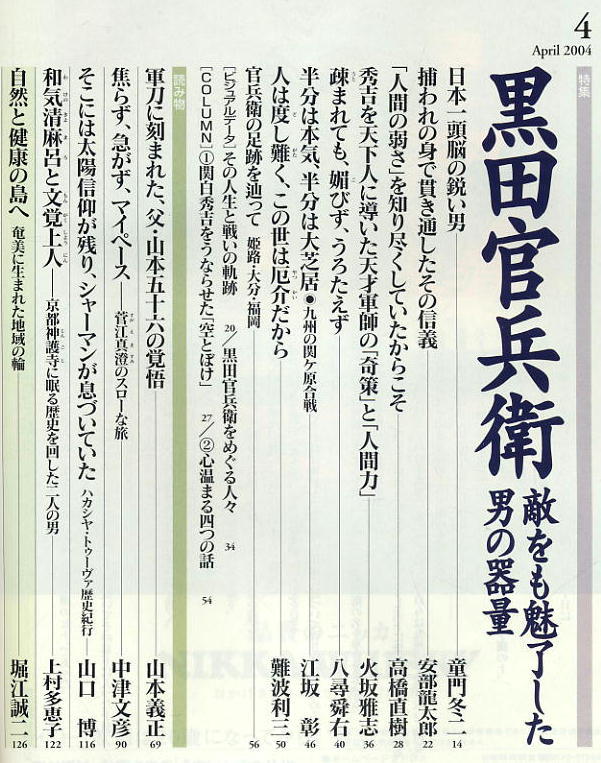 4
April 2004
特集
黒田官兵衛
敵をも魅了した
男の器量
日本一頭脳の鋭い男 童門冬二 14
捕われの身で貫き通したその信義 安部龍太郎 22
「人間の弱さ」を知り尽くしていたからこそ 高橋直樹 28
秀吉を天下人に導いた天才軍師の「奇策」と「人間力」 火坂雅志 36
疎まれても、媚びず、うろたえず 八尋舜右 40
半分は本気、半分は大芝居●九州の関ケ原合戦 江坂 彰 46
人は度し難く、この世は厄介だから 難波利三 50
官兵衛の足跡を辿って 姫路・大分・福岡 56
[ビジュアルデータ]その人生と戦いの軌跡 20/黒田官兵衛をめぐる人々 34
[COLUMN]①関白秀吉をうならせた「空とぼけ」 27/②心温まる四つの話 54
読み物
軍刀に刻まれた、父・山本五十六の覚悟 山本義正 69
焦らず、急がず、マイペース 菅江真澄のスローな旅 中津文彦 90
そこには太陽信仰が残り、シャーマンが息づいていた ハカシヤ・トゥーヴァ歴史紀行 山口 博 116
和気清麻呂と文覚上人 京都神護寺に眠る歴史を回した二人の男 上村多恵子 122
自然と健康の島へ 奄美に生まれた地域の輪 堀江誠二 126